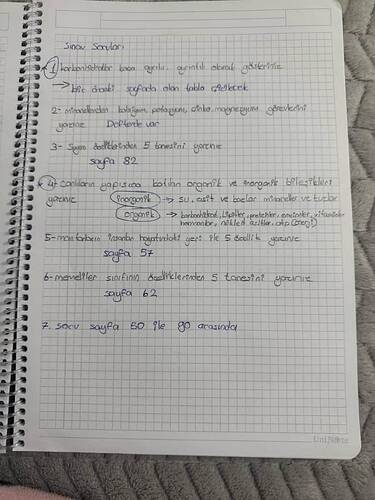 Sınav Soruları
1 karbonhidratlar kaça ayrılır, ayrıntılı olarak gösteriniz
→ bir önceki sayfada olan tablo çizilecek
2- minerallerden kalsiyum, potasyum, çinko, magnezyum görevlerini
yazınız Defterde var
3- Sigen özelliklerinden 5 tanesini yazınız
sayfa 82
4- canlıların yapısına katılan organik ve inorganik bileşikleri
yazınız inorganik → su, asit ve bazlar mineraller ve tuzlar
organik → karbonhidrat, lipitler, proteinler, enzimler, vitaminler
hormonlar, nükleik asitler, atp (enerji)
5- mantarların insanların hayatındaki yeri ile 5 özellik yazınız
sayfa 57
6- memeliler sınıfının özelliklerinden 5 tanesini yazınız
sayfa 62
7. soru sayfa 50 ile 80 arasında
UniNote